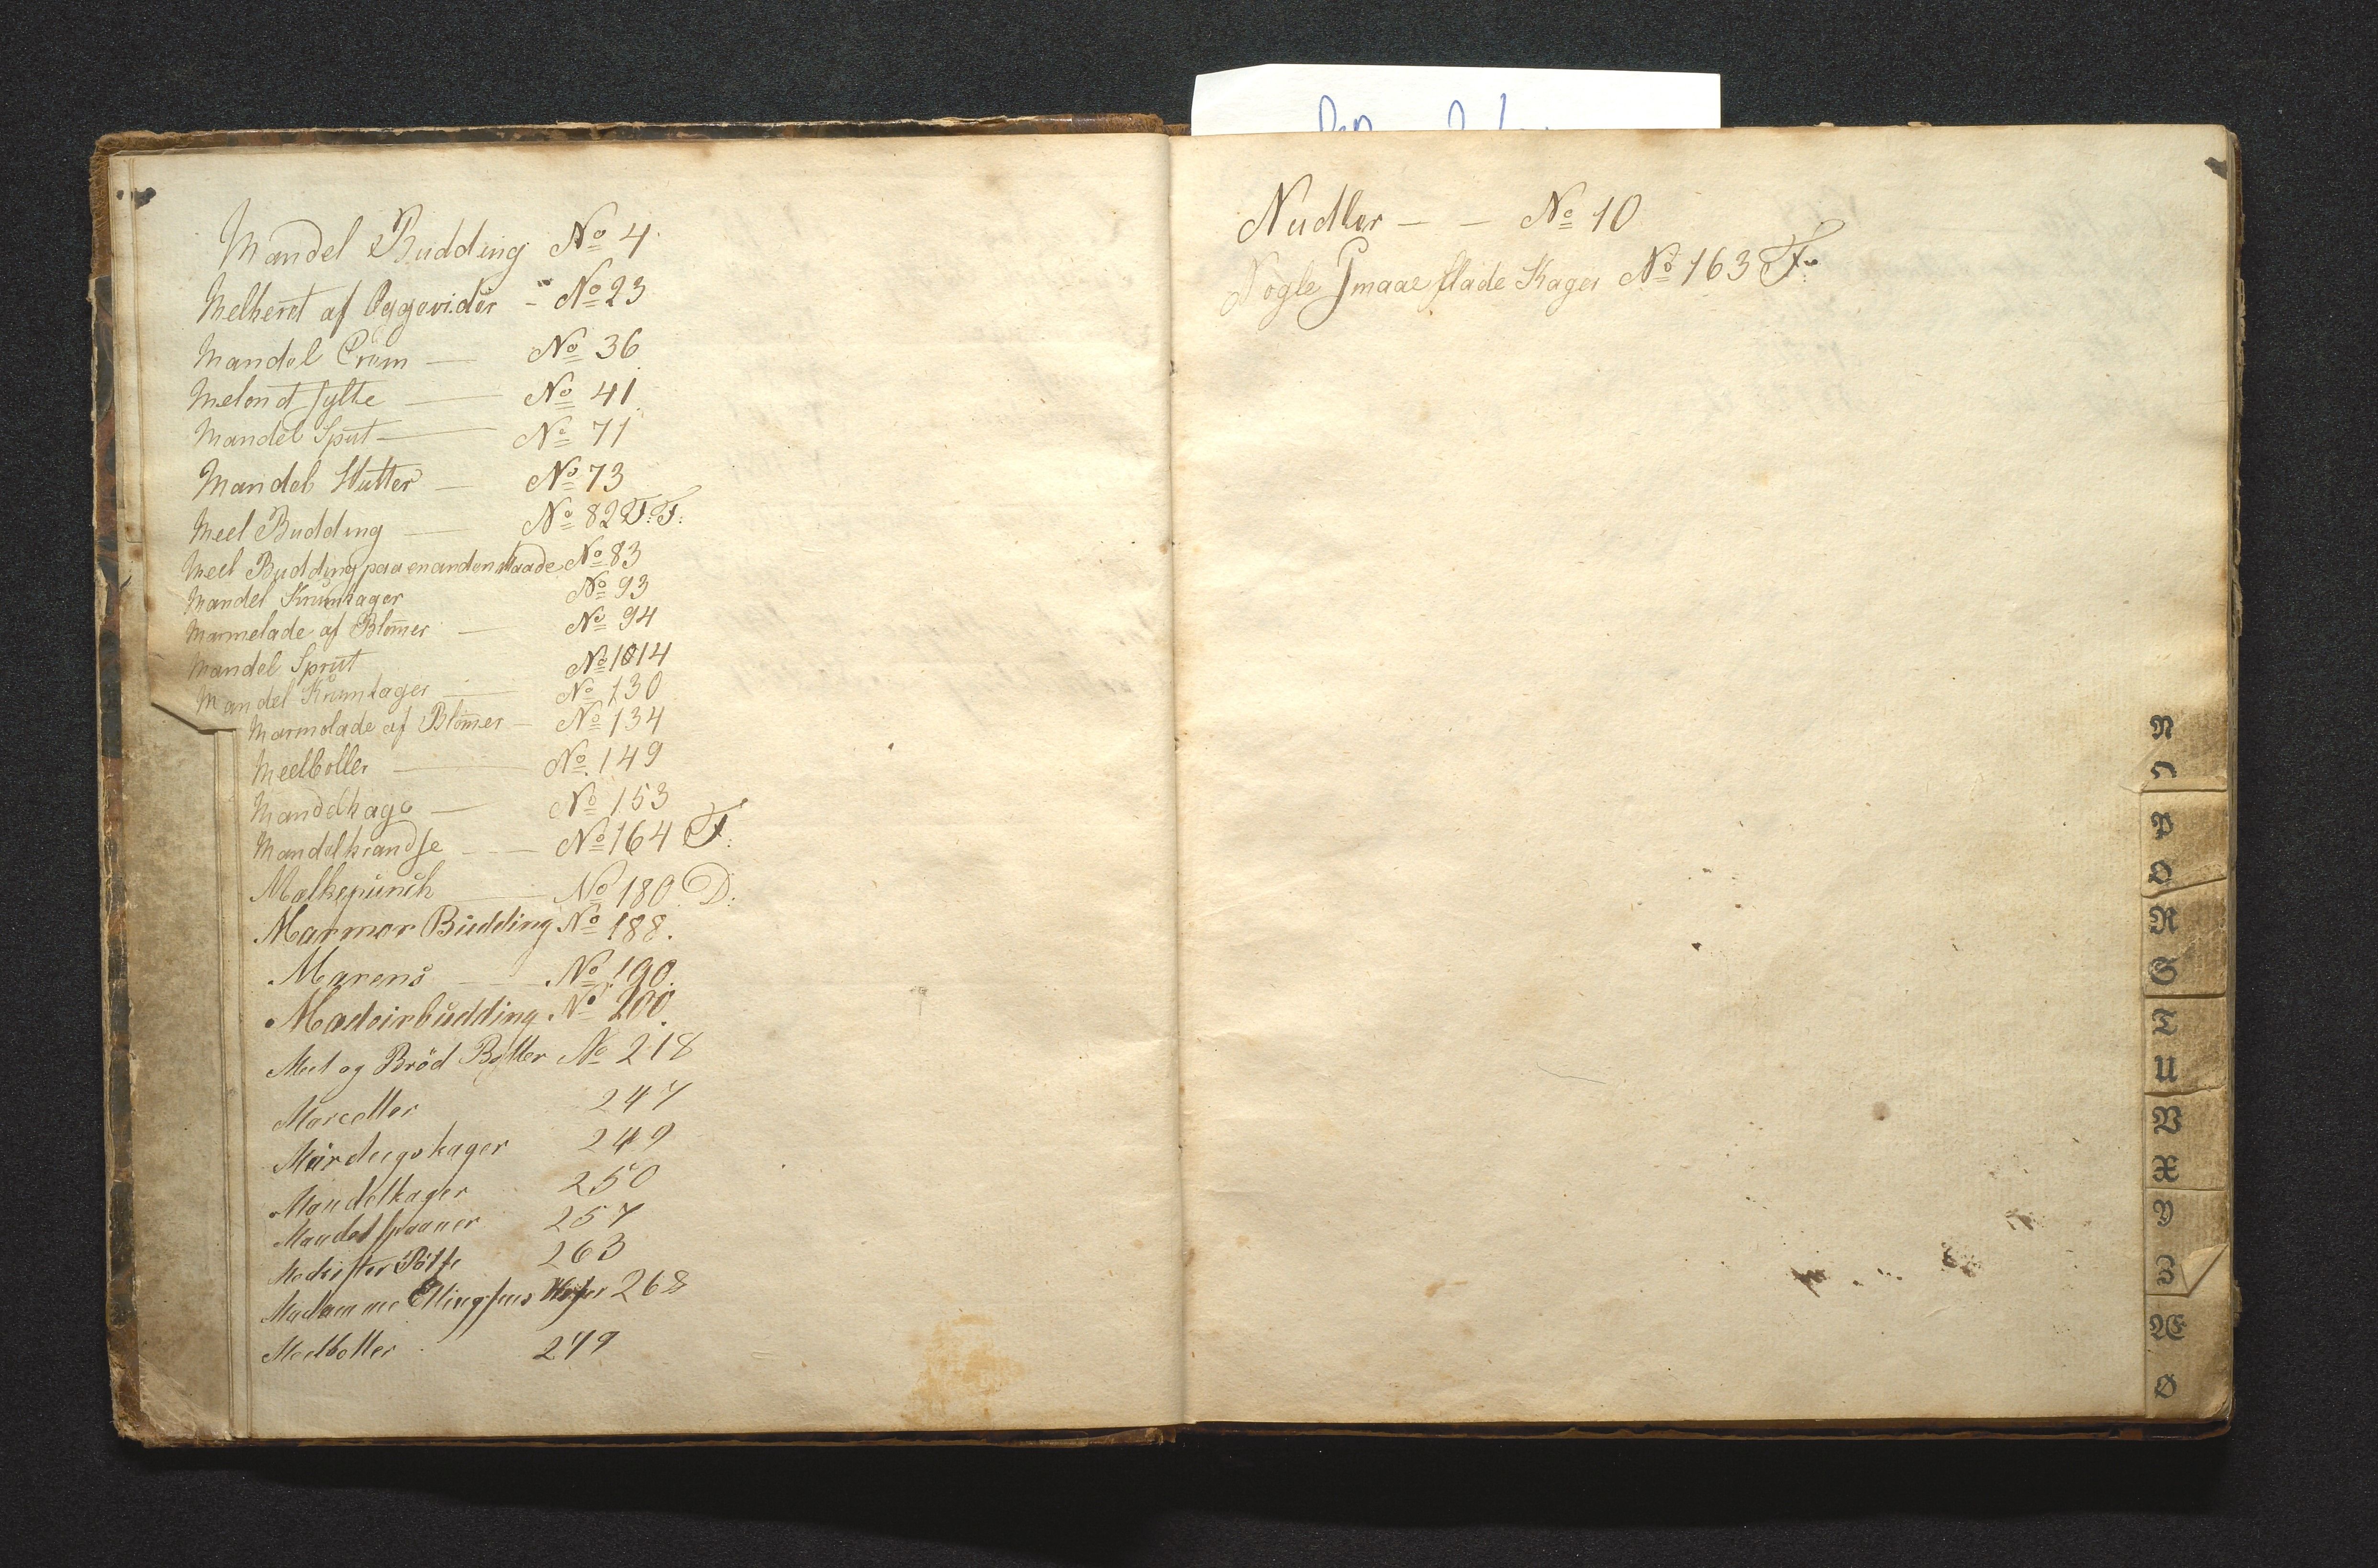 Mandel Budding No 4.
Melkeret af Eggevider - No 23
Mandel Crem — No 36
Melon at sylte — No 41
Mandel Sput — No 71
Mandel Hutter — No 73
Meel Budding — No 82 T:T:
Meel Budding paa en anden Maade No 83
Mandel Krumkager No 93
Marmelade af Blomer — No 94
Mandel Sprut No 1014
Mandel Krumkager — No 130
Marmolade af Blomer — No 134
Meelboller — No. 149
Mandelkage — No 153
Mandelkrandse — No 164 F.
Mælkepunch No 180 D.
Marmor Budding No 188.
Marens — No 190.
Madeirbudding No 200.
Meel og Bröd Boller No 218
Morceller 247
Mördeigskager 249
Mandelkager 250
Mandelspaaner 257
Medister Pölse 263
Madamme Ellingsens 268
Meelboller 279
Nudler — — No 10
Nogle Smaae flade Kager No 163 F.
N
O
P
Q
R
S
T
U
V
X
Y
Z
Æ
Ø